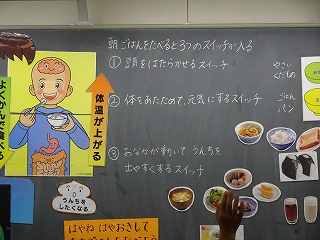 朝ごはんをたべると3つのスイッチが入る
① 頭をはたらかせるスイッチ
やさい
くだもの
② 体をあたためて、元気にするスイッチ
ごはん
パン
③ おなかが動いて うんちを
出やすくするスイッチ
よくかんで食べる
体温が上がる
うんちを
したくなる
はやね はやおきして